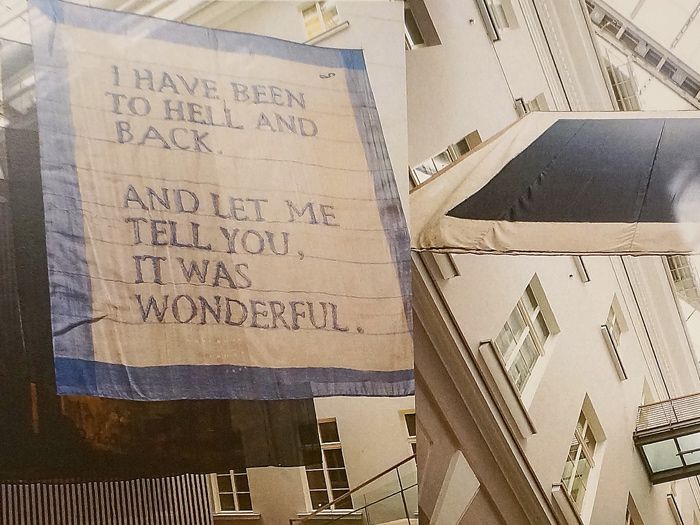 I HAVE BEEN
TO HELL AND
BACK.
AND LET ME
TELL YOU,
IT WAS
WONDERFUL.